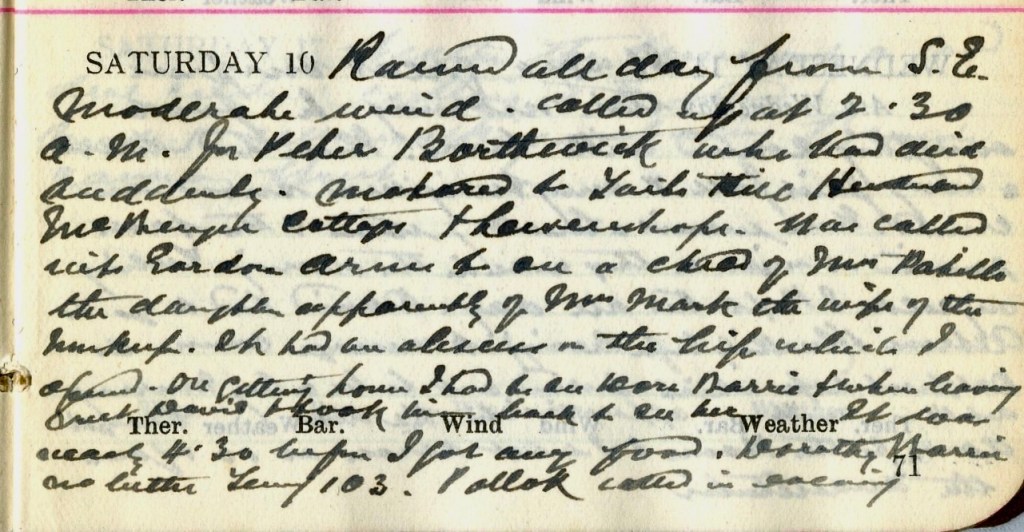 SATURDAY 10 Rained all day from S.E.
Moderate wind. Called up at 2.30
a.m. for Peter Borthwick who had died
suddenly. Motored to Hill
cottage &. Was called
into Gordon Arms to see a child of Mrs
the daughter apparently of Mrs Mark the wife of the
. It had an abscess on the hip which I
opened. On getting home I had to see Barrie & when leaving
met David & took him back to see her. It was
Ther. Bar. Wind Weather
nearly 4.30 before I got any food. Dorothy Barrie
no better Temp 103. Pollok called in evening
71